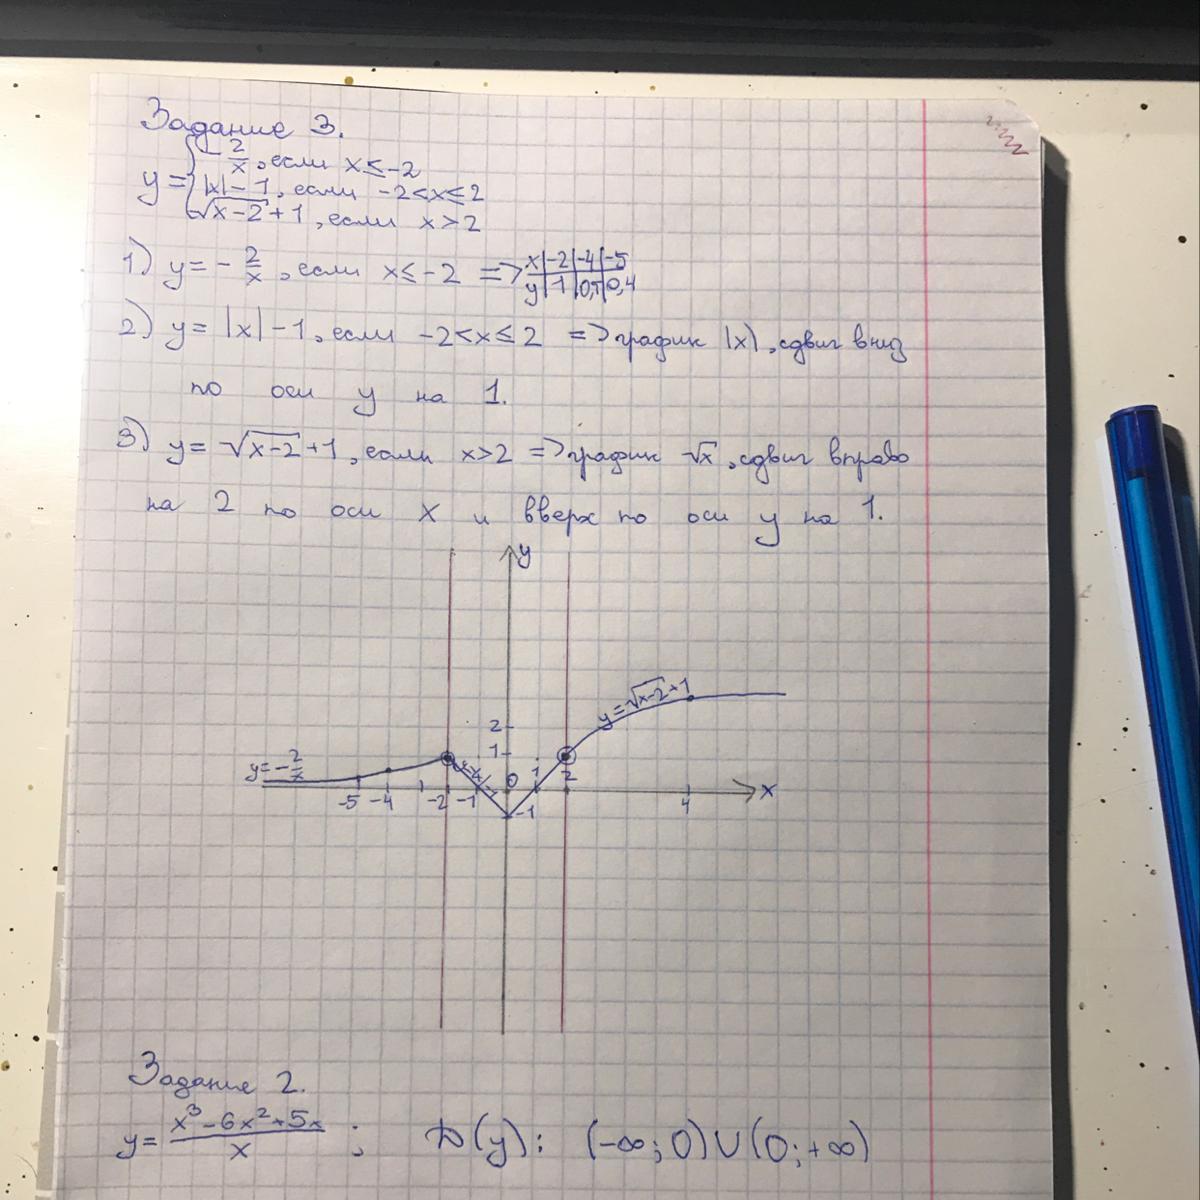 Задание 3.
y = { -2/x, если x ≤ -2
|x| - 1, если -2 < x ≤ 2
√(x-2) + 1, если x > 2
1) y = - 2/x, если x ≤ -2 => x | -2 | -4 | -5
y | 1 | 0,5 | 0,4
2) y = |x| - 1, если -2 < x ≤ 2 => график |x|, сдвиг вниз
по оси y на 1.
3) y = √(x-2) + 1, если x > 2 => график √x, сдвиг вправо
на 2 по оси x и вверх по оси y на 1.
y
y = √(x-2) + 1
2
1
y = - 2/x
y = |x| - 1
0 1 2
-5 -4 -2 -1 4 x
-1
Задание 2.
y = (x³ - 6x² + 5x)/x ; D(y): (-∞; 0) ∪ (0; +∞)